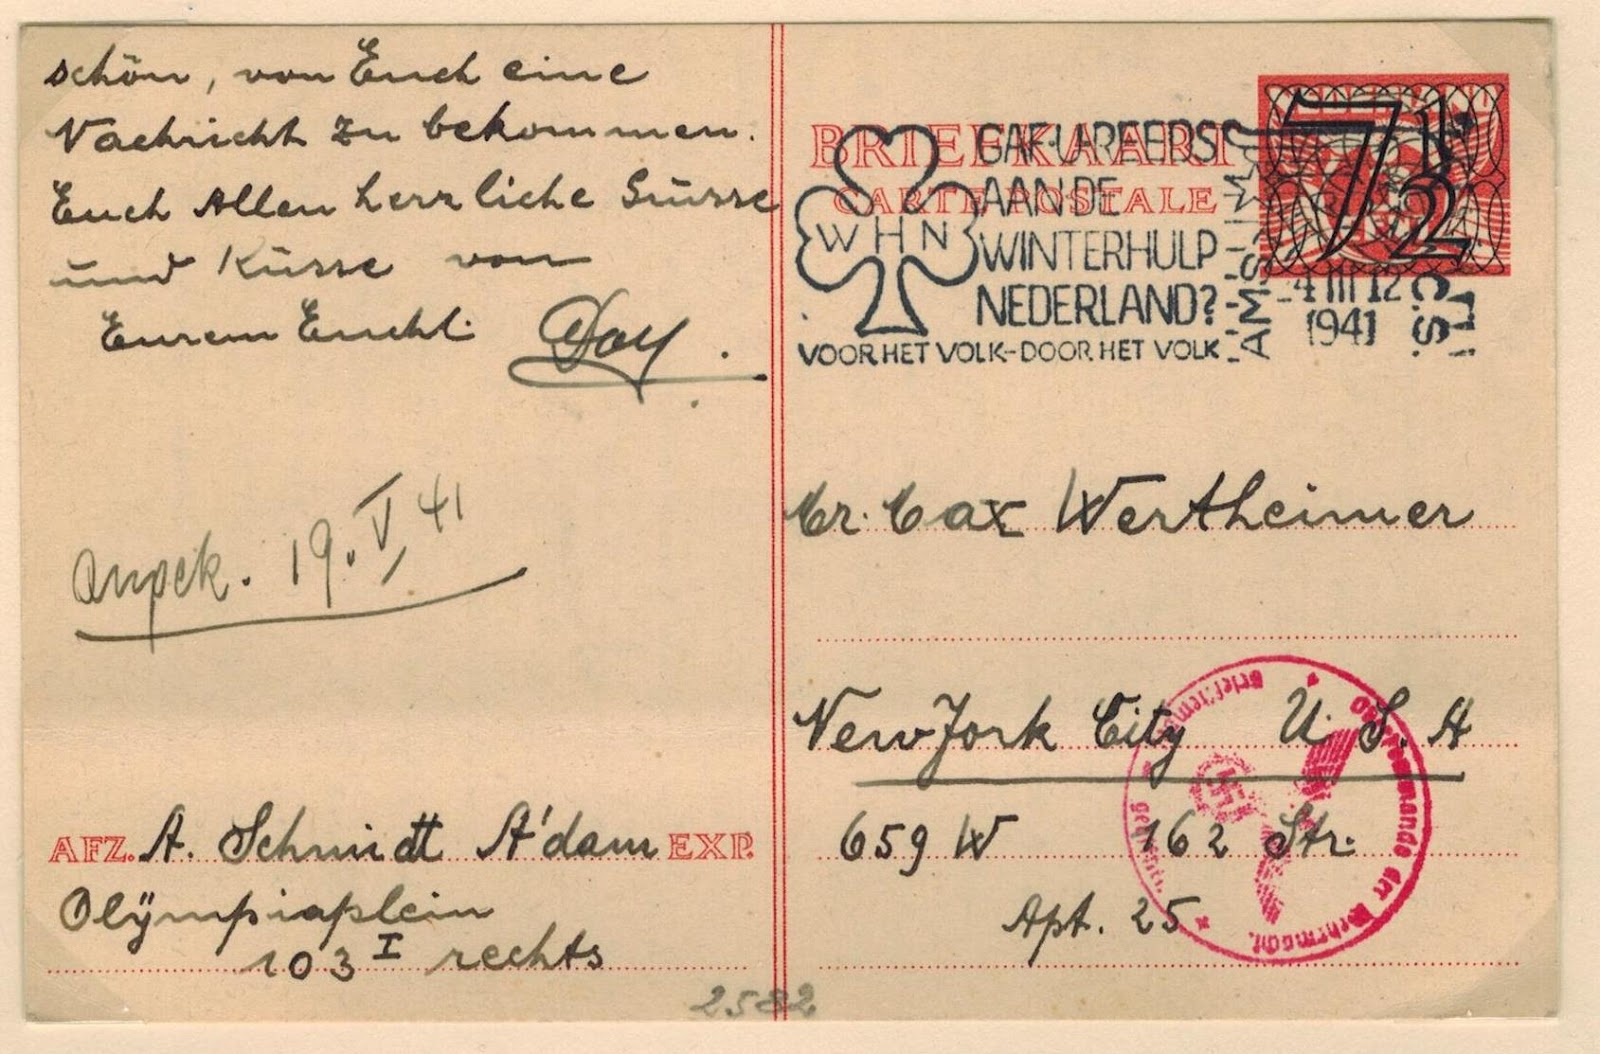 schön, von Euch eine
Nachricht zu bekommen.
Euch Allen herzliche Grüsse
und Küsse von
Eurem
19. V 41
AFZ. A. Schmidt A'dam EXP.
Olÿmpiaplein
103 I rechts
BRIEFKAART
CARTE POSTALE
7½
WHN
GAF U REEDS
AAN DE
WINTERHULP
NEDERLAND?
VOOR HET VOLK-DOOR HET VOLK
AMST
-4 III 12
1941
Mr. Max Wertheimer
New Jork City U. S. A
659 W 162 Str.
Apt. 25
Oberkommando der Wehrmacht
2582